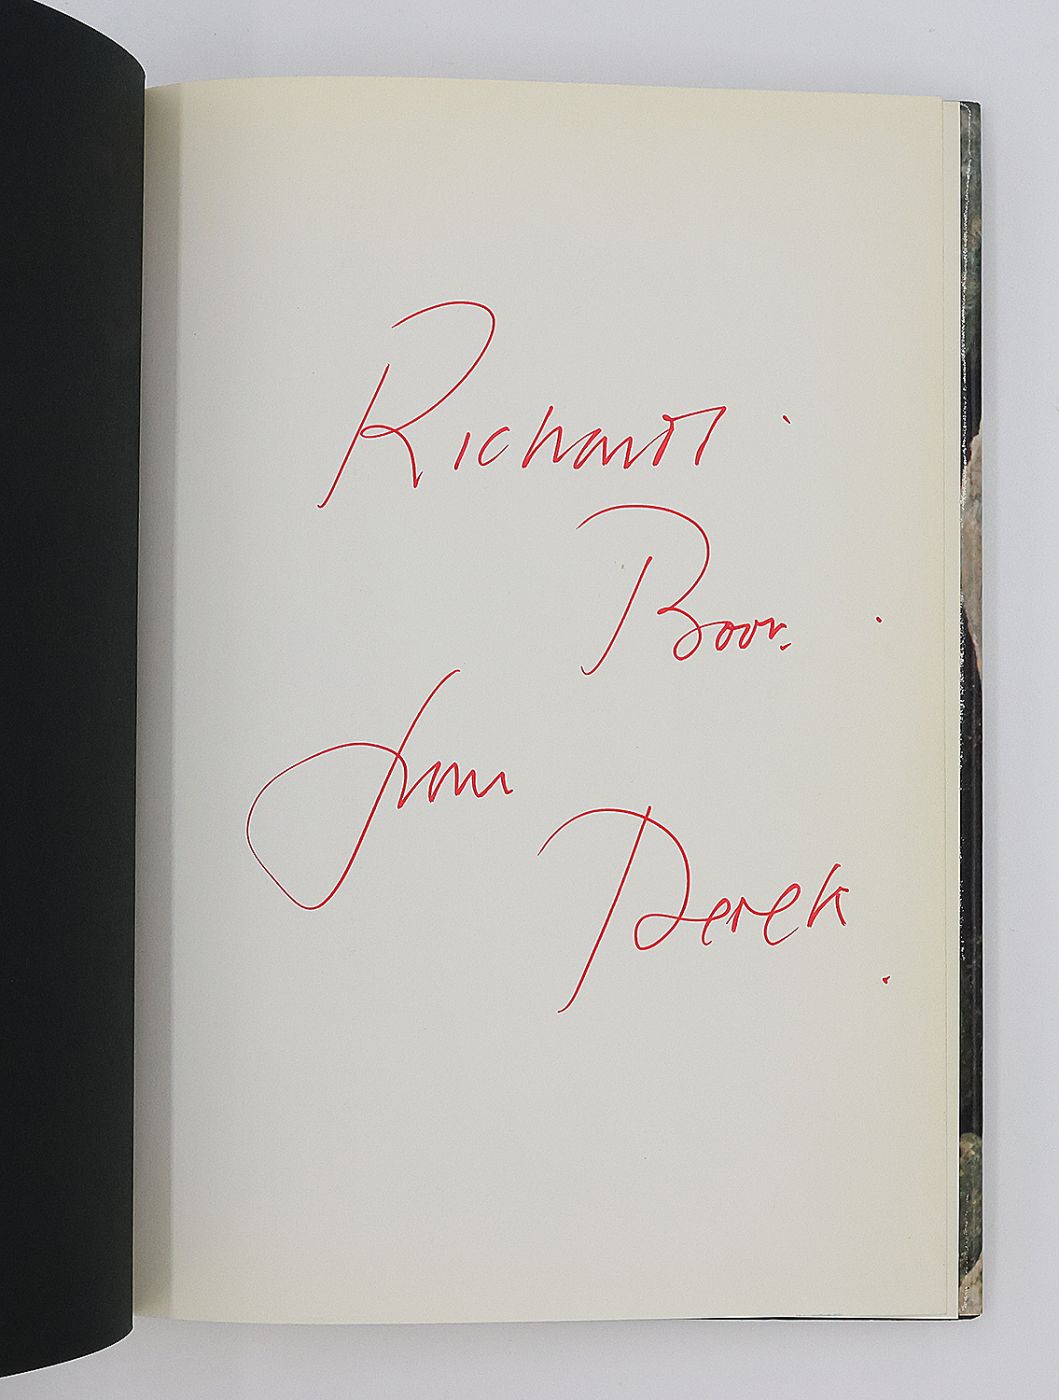 Richard
Boor.
from
Derek.